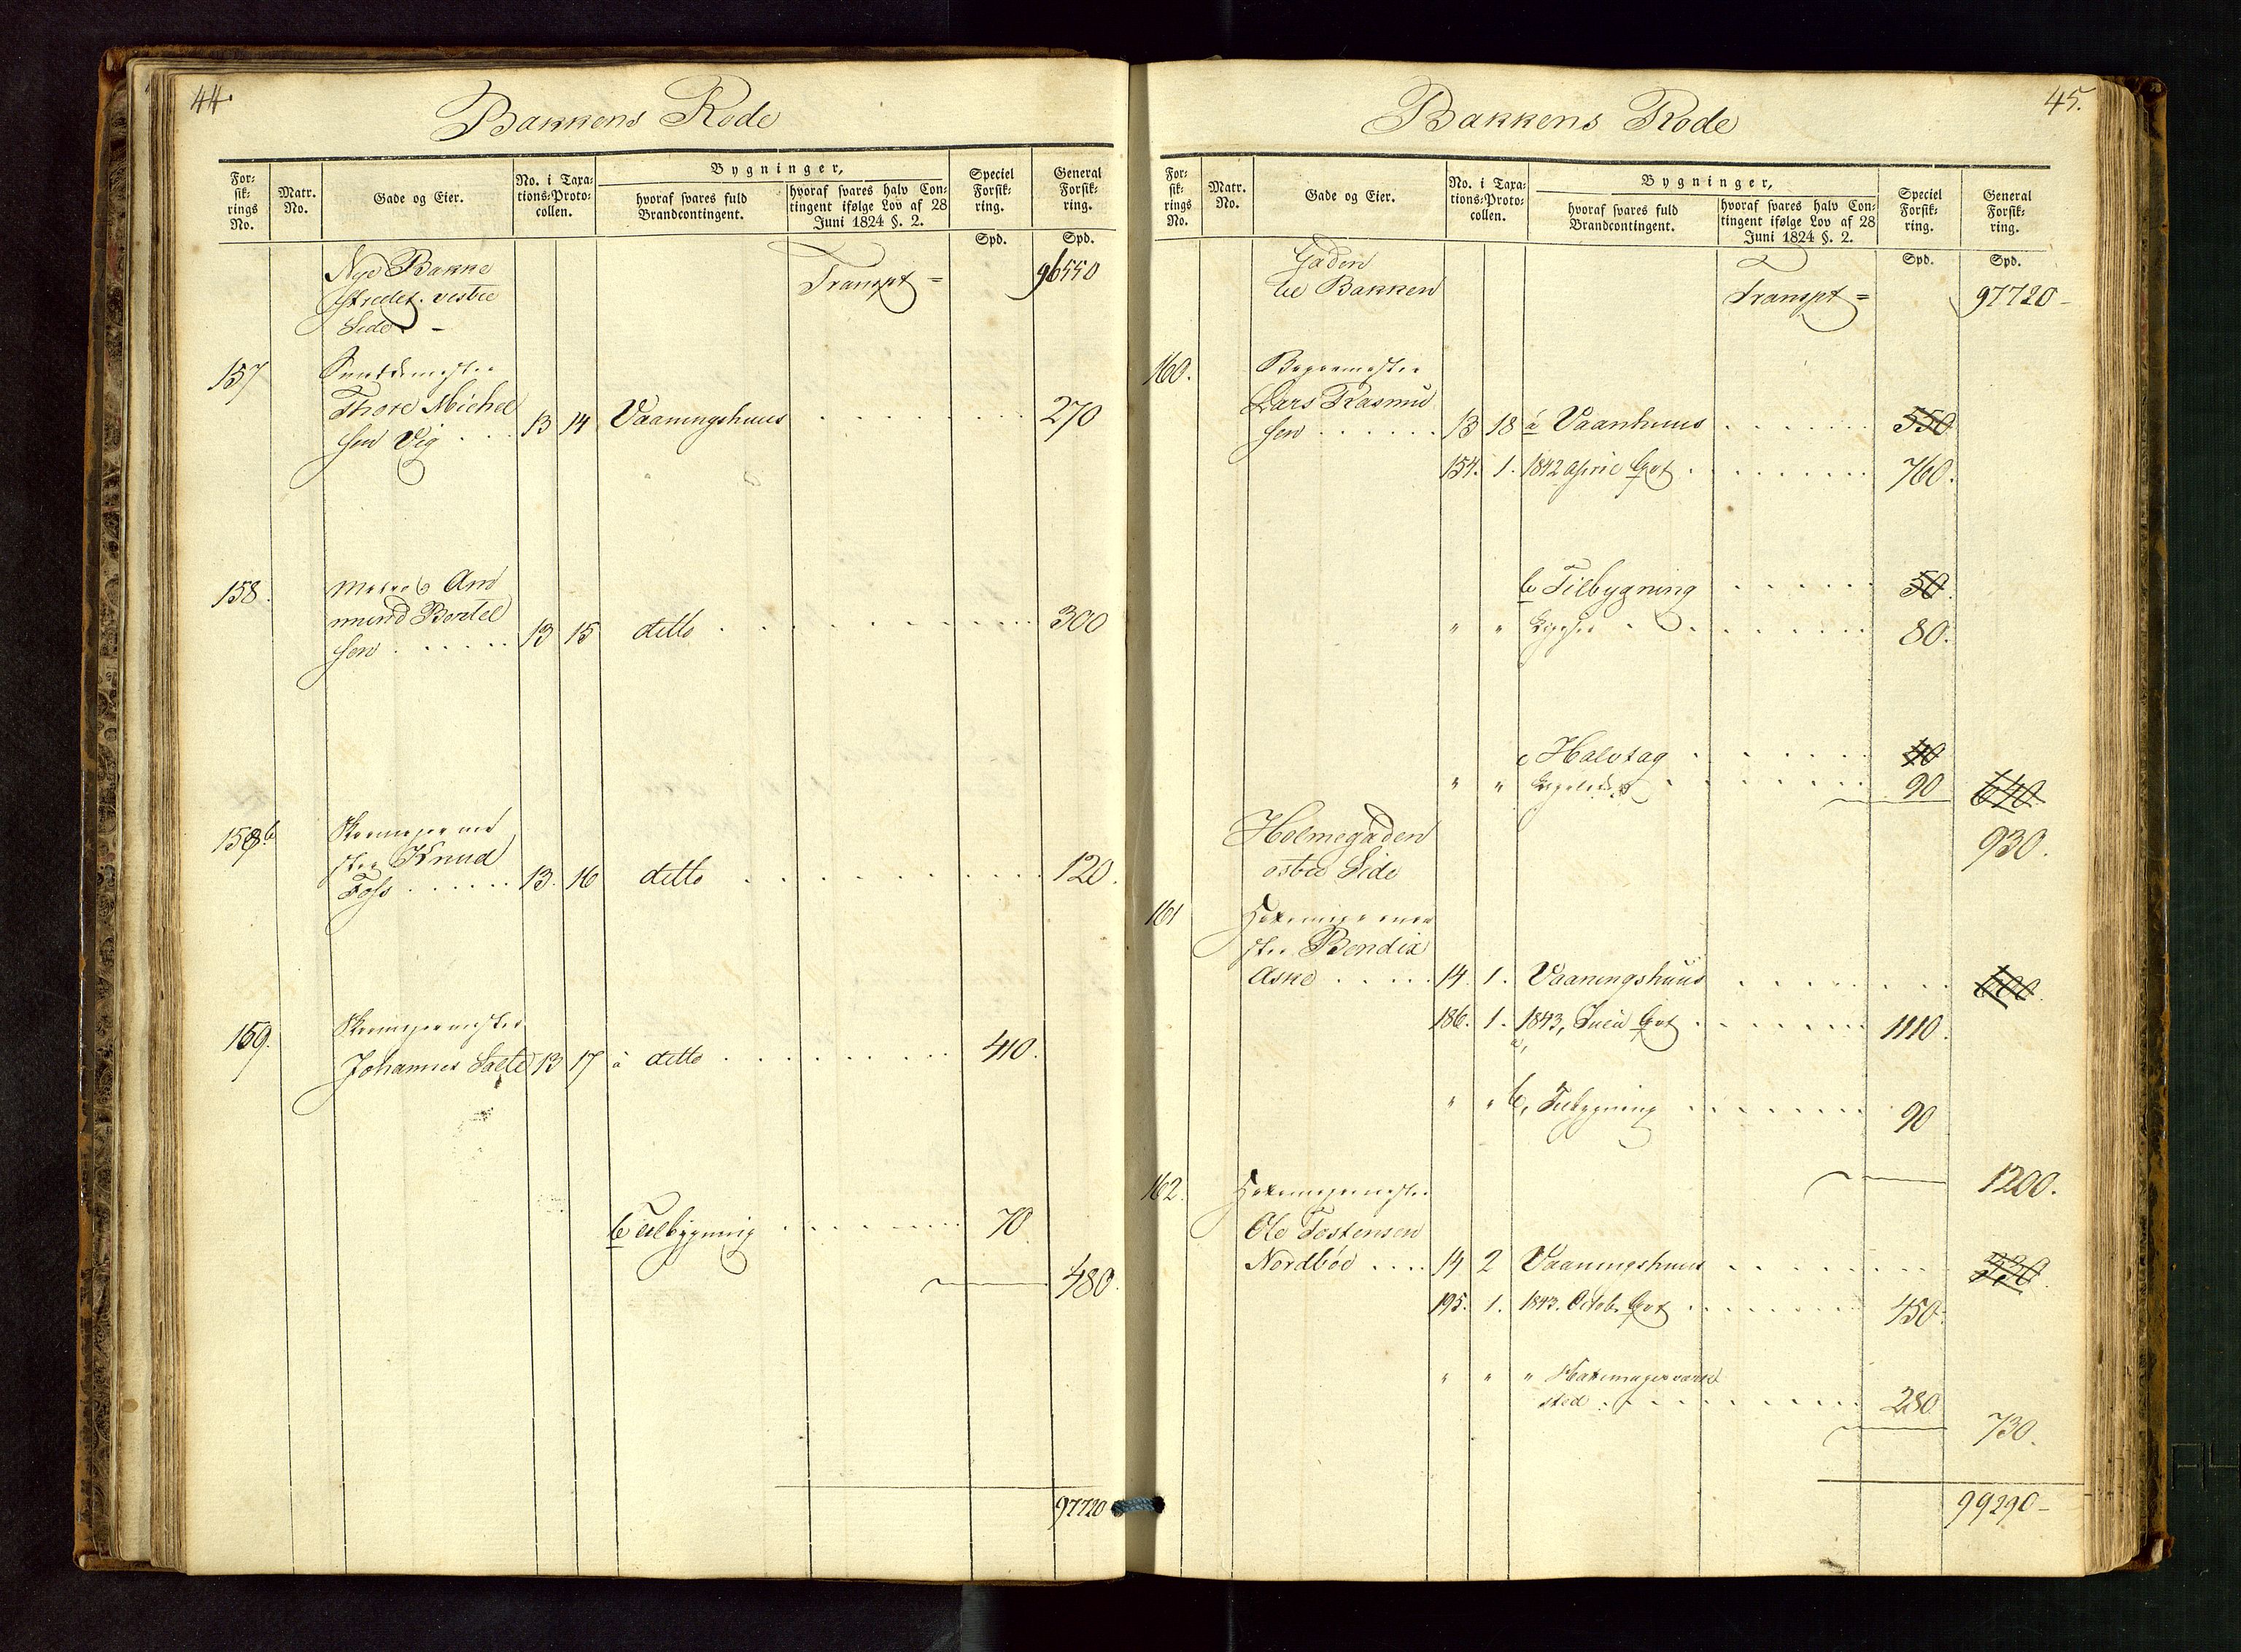 44.
Bakkens Rode
For-
sik-
rings
No.
Matr.
No.
Gade og Eier.
No. i Taxa-
tions-Proto-
collen.
Bygninger,
hvoraf svares fuld
Brandcontingent.
hvoraf svares halv Con-
tingent ifølge Lov af 28
Juni 1824 §. 2.
Speciel
Forsik-
ring.
General
Forsik-
ring.
Spd. Spd.
Nye Bakke
strædet. vestre
Side. -
Transpt = 96550
157
Thore Michel
sen Vig . . . 13 14 Vaaningshuus . . . 270
158.
Am
mund Bertel
sen . . . 13 15 ditto . . . 300
158b
Skomager me
ster Knud
Foss . . . 13. 16 ditto . . . 120.
159.
Skomagermester
Johannes Salte 13 17 a ditto . . . 410.
b Tilbygning . . . 70
480.
97720
45.
Bakkens Rode
For-
sik-
rings
No.
Matr.
No.
Gade og Eier.
No. i Taxa-
tions-Proto-
collen.
Bygninger,
hvoraf svares fuld
Brandcontingent.
hvoraf svares halv Con-
tingent ifølge Lov af 28
Juni 1824 §. 2.
Speciel
Forsik-
ring.
General
Forsik-
ring.
Spd. Spd.
Gaden
til Bakken
Transpt = 97720-
160.
Bagermester
Lars Rasmus
sen . . . 13 18 a Vaanhuus . . . 550
154. 1. 1842 April . . . 760.
b Tilbygning . . . 50.
" " . . . 80.
c Halvtag . . . 40
" " . . . 90 640.
930.
Holmegaden
østre Side
161
ster Bendix
Aske . . . 14. 1. Vaaningshuus . . . 600.
186. 1. 1843, Juli . . . 1110.
a,
" " b, Tilbygning . . . 90
1200.
162.
Ole Tostensen
Nordbøe .... 14. 2 Vaaningshuus . . .
195. 1. 1843. Octob. . . . 450.
" " " Hattemagerværk
sted . . . 280
730.
99290-